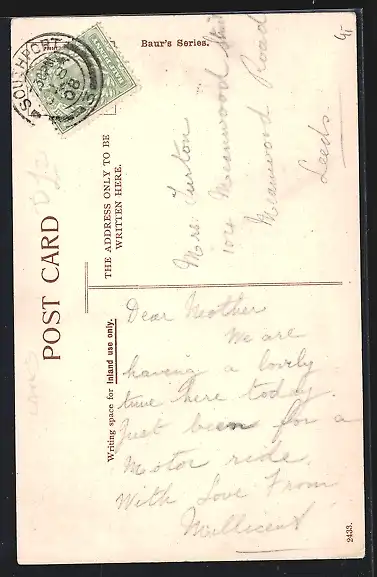 Baur's Series.
SOUTHPORT
08
POST CARD
THE ADDRESS ONLY TO BE
WRITTEN HERE.
Mrs. Turton
104 Meanwood Street
Meanwood Road
Leeds.
Writing space for Inland use only.
Dear Mother
We are
having a lovely
time here today.
Just been for a
Motor ride.
With Love From
Millicent
2433.